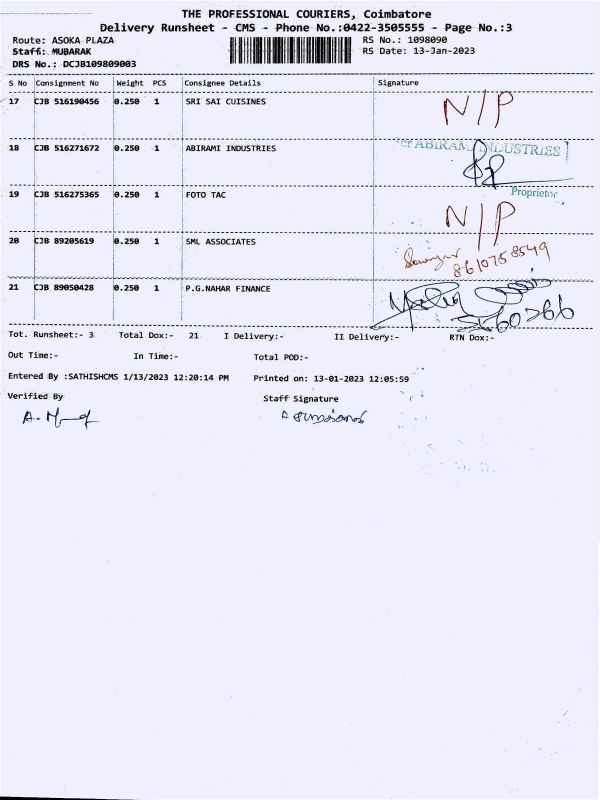 THE PROFESSIONAL COURIERS, Coimbatore
Delivery Runsheet - CMS - Phone No.:0422-3505555 - Page No.:3
Route: ASOKA PLAZA RS No.: 1098090
Staff: MUBARAK RS Date: 13-Jan-2023
DRS No.: DCJB109809003
S No Consignment No Weight PCS Consignee Details Signature
17 CJB 516190456 0.250 1 SRI SAI CUISINES N/P
18 CJB 516271672 0.250 1 ABIRAMI INDUSTRIES For ABIRAMI INDUSTRIES
Proprietor
19 CJB 516275365 0.250 1 FOTO TAC N/P
20 CJB 89205619 0.250 1 SML ASSOCIATES 8610758549
21 CJB 89050428 0.250 1 P.G.NAHAR FINANCE
Tot. Runsheet:- 3 Total Dox:- 21 I Delivery:- II Delivery:- RTN Dox:-
Out Time:- In Time:- Total POD:-
Entered By :SATHISHCMS 1/13/2023 12:20:14 PM Printed on: 13-01-2023 12:05:59
Verified By Staff Signature